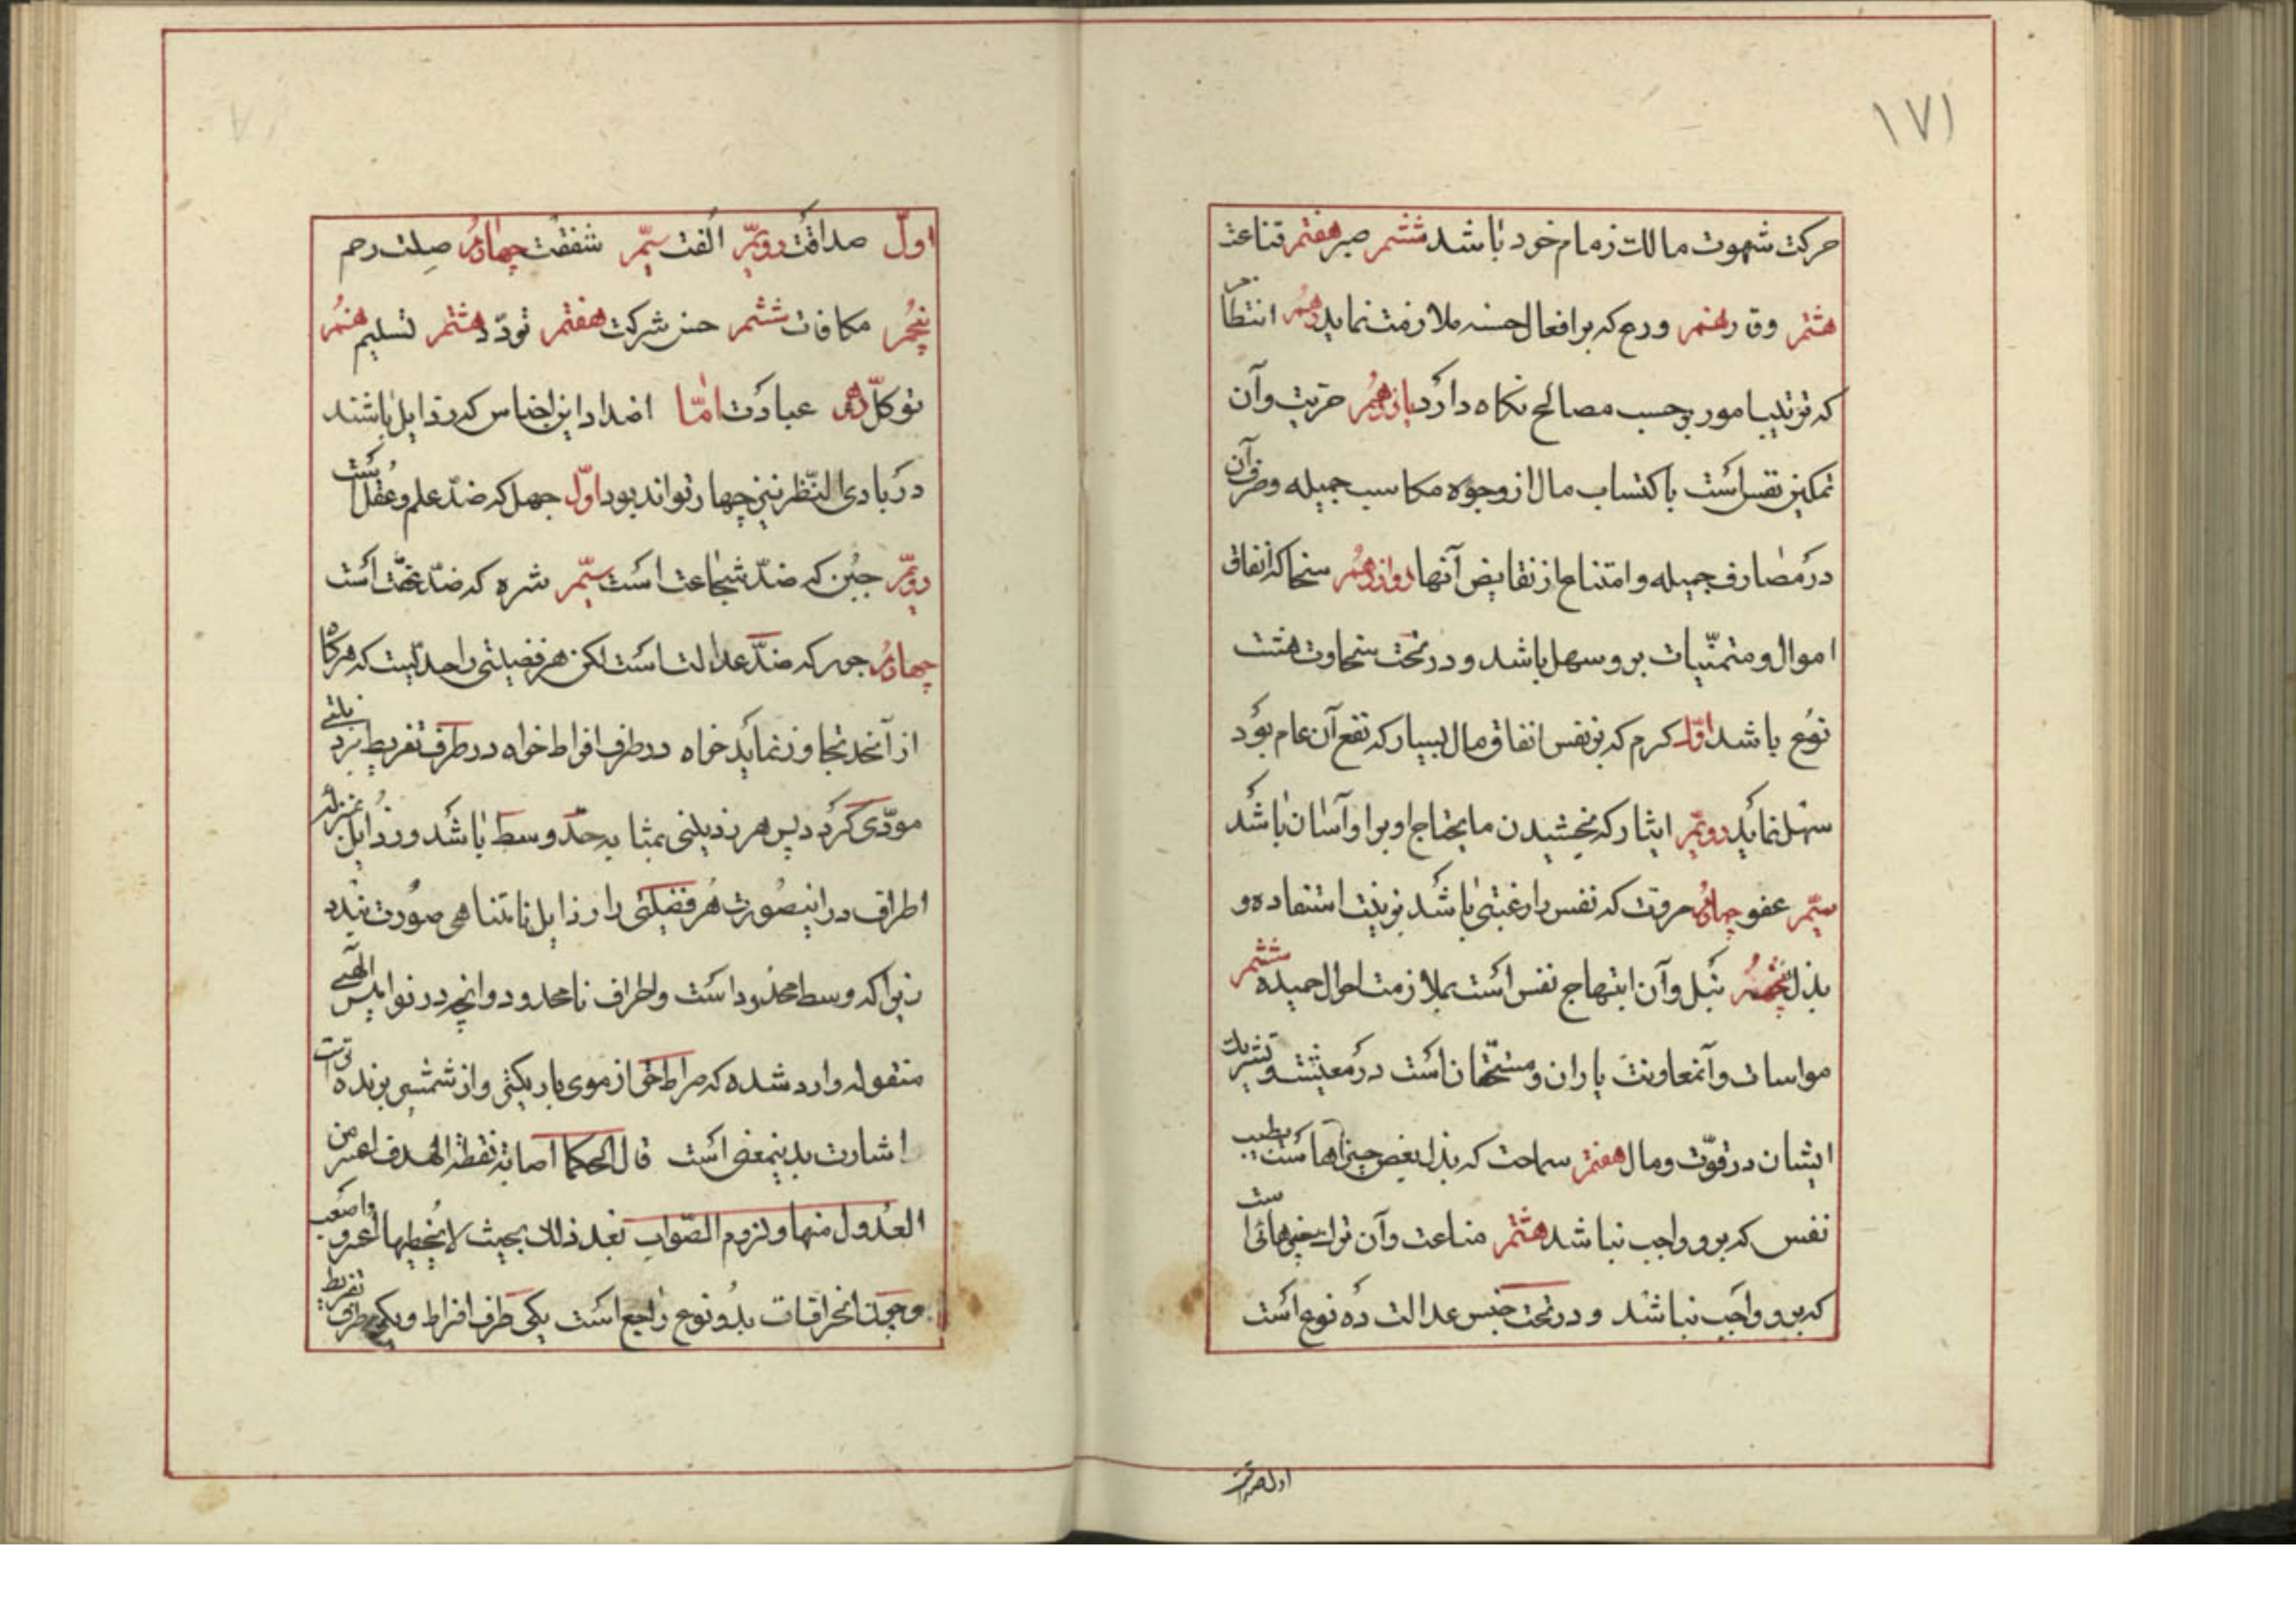 ١٧١
حرکت شهوت مالک زمام خود باشد ششم صبر هفتم قناعت
هشتم وقار نهم ورع که بر افعال حسنه ملازمت نماید دهم انتظام
که ترتیب امور بر حسب مصالح نکاه دارد یازدهم حریت وآن
تمکین نفس است باکتساب مال از وجوه مکاسب جمیله وصرف آن
در مصارف جمیله وامتناع از نقایض آنها دوازدهم سخا که انفاق
اموال ومتمنّیات برو سهل باشد و در تحت سخاوت هشت
نوع باشد اوّل کرم که بر نفس انفاق مال بسیار که نفع آن عام بود
سهل نماید دویّم ایثار که بخشیدن مایحتاج او برا و آسان باشد
سیّم عفو چهارم مروت که نفس را رغبتی باشد بزینت استفاده و
بذل پنجم نبل وآن ابتهاج نفس است بملازمت احوال حمیده ششم
مواسات وآن معاونت یاران ومستحقّان است در معیشت وتشریک
ایشان در قوّت ومال هفتم سماحت که بذل بعض چیزها است بطیب
نفس که برو واجب نباشد هشتم مناعت وآن ترک چیزهائی است
که برو واجب نباشد و در تحت جنس عدالت ده نوع است
اول صداقت
اوّل صداقت دویّم الفت سیّم شفقت چهارم صلت رحم
پنجم مکافات ششم حسن شرکت هفتم تودّد هشتم تسلیم نهم
توکّل دهم عبادت امّا اضداد این اجناس که رذایل باشند
در بادی النّظر نیز چهار تواند بود اوّل جهل که ضدّ علم وعقل است
دویّم جبن که ضدّ شجاعت است سیّم شره که ضدّ عفّت است
چهارم جور که ضدّ عدالت است لکن هر فضیلتی را حدّیست که هرکاه
از آنحد تجاوز نماید خواه در طرف افراط خواه در طرف تفریط برذیلتی
مودّی کردد پس هر فضیلتی بمثابه حدّ وسط باشد ورذایل بمنزله
اطراف در اینصورت هر فضیلتی را رذایل نامتناهی صورت بندد
زیرا که وسط محدود است واطراف نامحدود وانچه در نوامیس الهی
منقوله وارد شده که صراط حق از موی باریکتر واز شمشیر برنده تر است
اشارت بدینمعنی است قال الحکما اصابة نقطة الهدف اعسر من
العدول منها ولزوم الصّواب بعد ذلک بحیث لایخطیها اعسر واصعب
وجمیع انحرافات بدو نوع راجع است یکی طرف افراط ویکی طرف تفریط